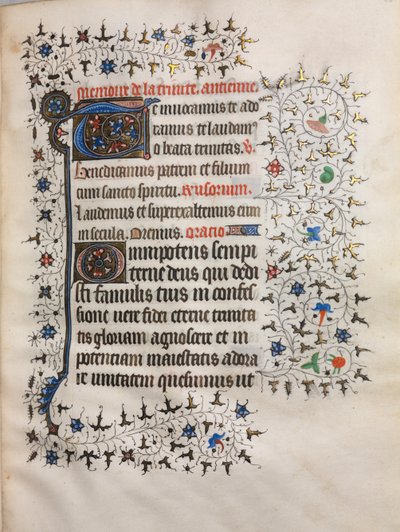 Memoire de la trinite. antienne.
Te inuocamus te ado
ramus te laudam᷒
o beata trinitas. V̷.
Benedicamus patrem et filium
cum sancto spiritu. Responsorium.
Laudemus et superexaltemus eum
in secula. Oremus. oratio
Omnipotens sempi
terne deus qui dedi
sti famulis tuis in confes
sione uere fidei eterne trinita
tis gloriam agnoscere et in
potenciam maiestatis adora
re unitatem quesumus ut